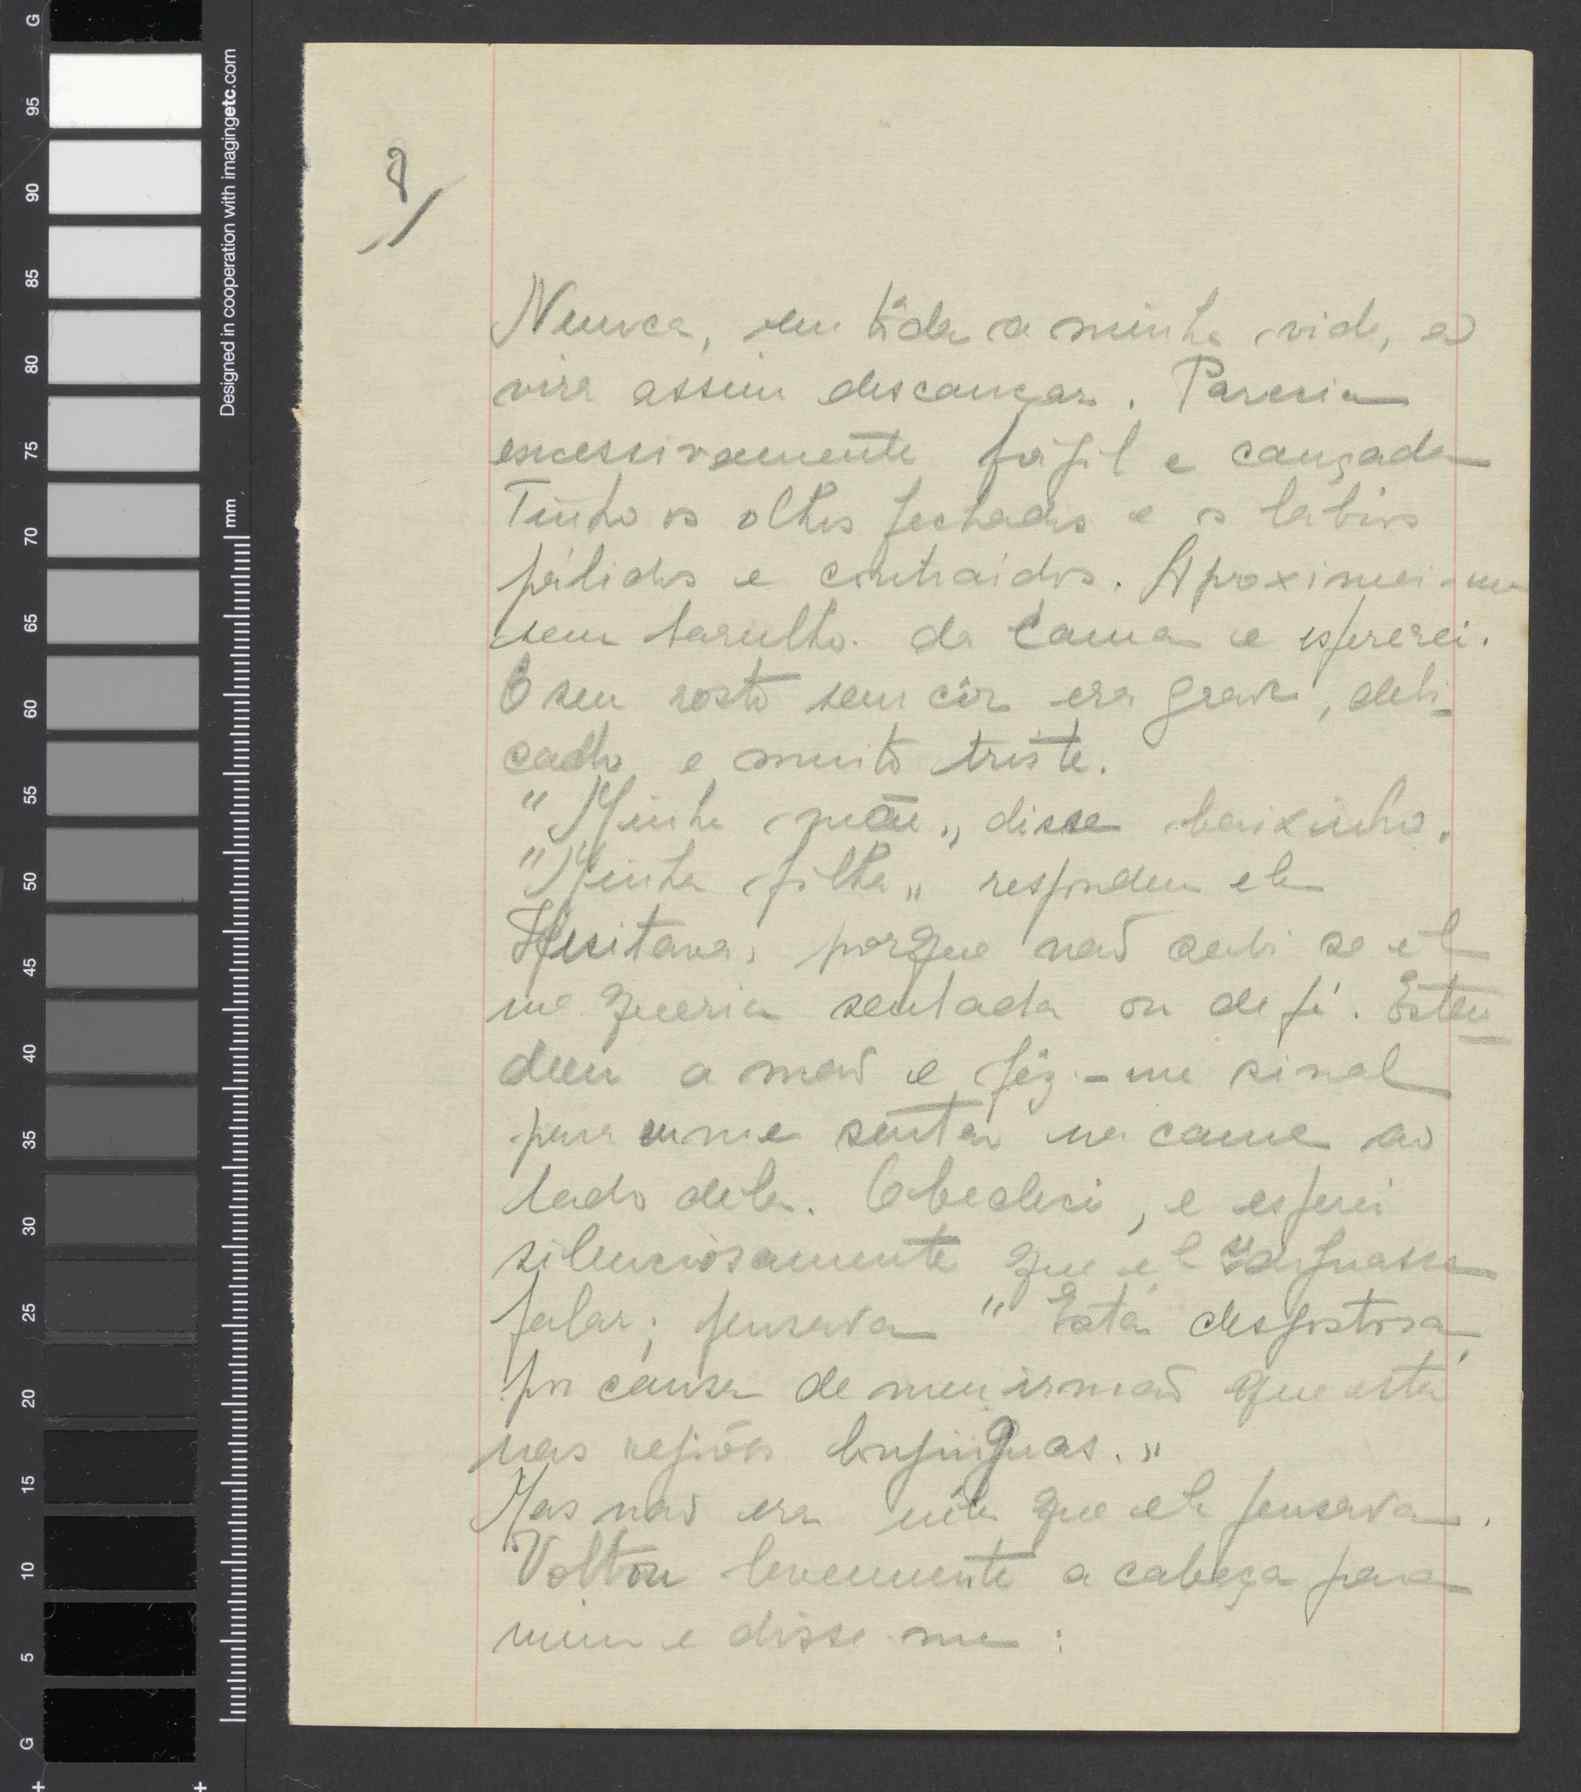 G
95
90
85
80
75
70
65
60
55
50
45
40
35
30
25
20
15
10
5
G
Designed in cooperation with imagingetc.com
mm
8/
Nunca, em tôda a minha vida, a
vira assim descançar. Parecia
excessivamente frágil e cançada
Tinha os olhos fechados e os labios
pálidos e contraidos. Aproximei-me
sem barulho da cama e esperei.
O seu rosto sem côr era grave, deli-
cado e muito triste.
"Minha mãe„ disse baixinho.
"Minha filha„ respondeu ela
Hesitava, porque não sabi se ela
me queria sentada ou de pé. Esten
deu a mão e fêz-me sinal
para me sentar na cama ao
lado dela. Obedeci, e esperei
silenciosamente que ela
falar; pensava "Está desgostosa,
por causa de meu irmão que está
nas regiões longinquas.„
Mas não era nele que ela pensava.
Voltou levemente a cabeça para
mim e disse-me: